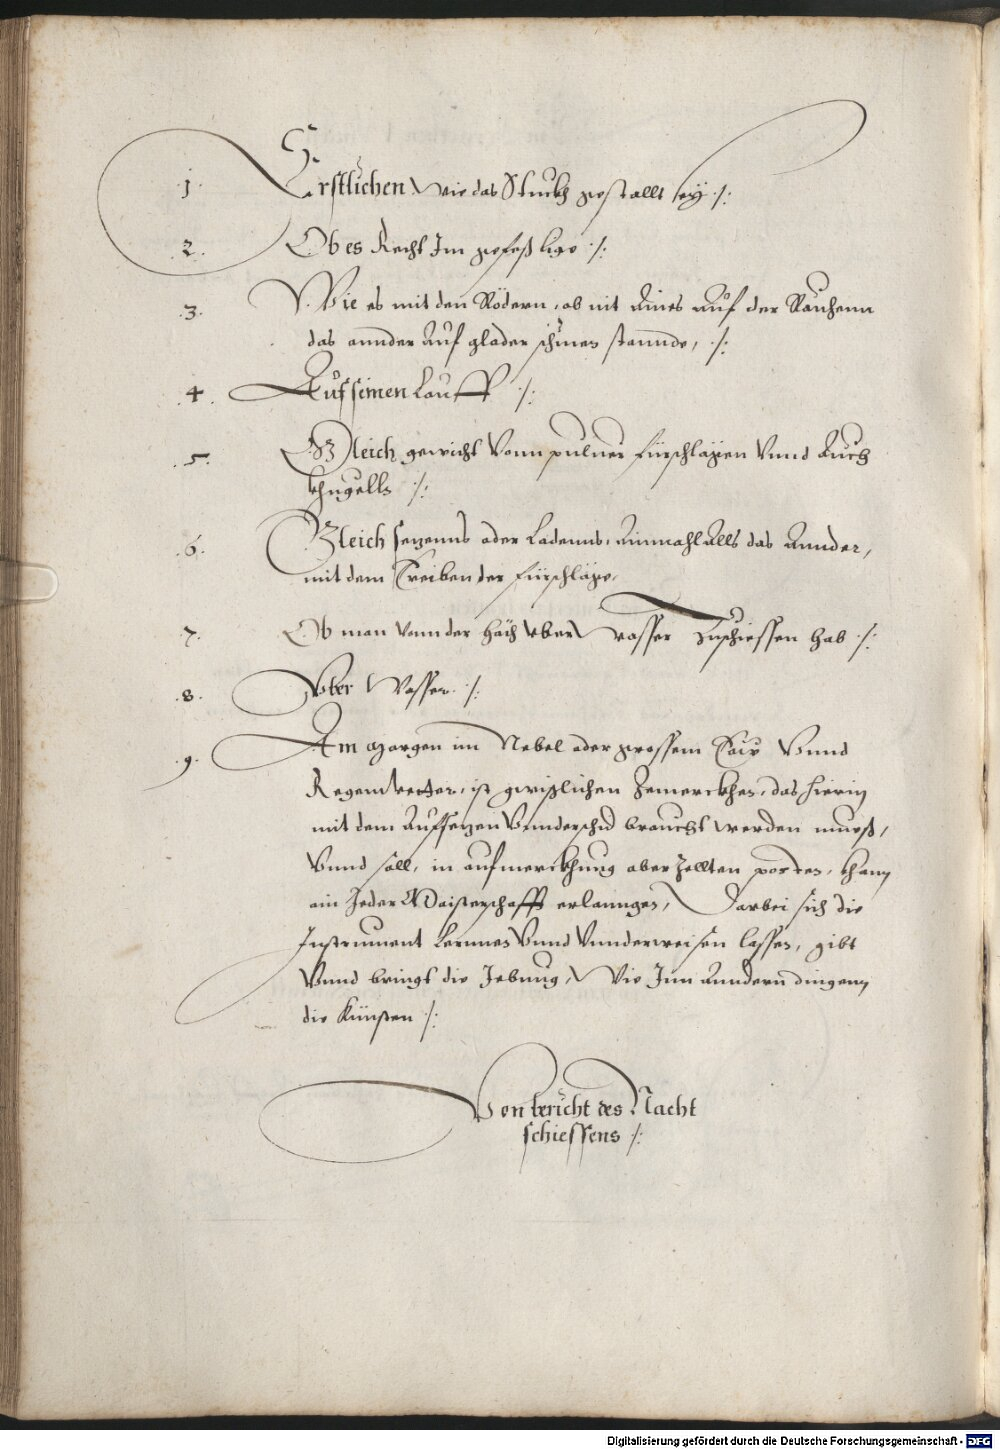 1. Erstlichen Wie das Stuckh gestallt sey ·/:
2. Ob es Recht Im gefeß lige ·/:
3. Wie es mit den Rödern, ob nit Aines Auf der Rauhenn
das annder Auf glader stannde, ·/:
4. Auf seinen Lauff ·/:
5. Gleich gewicht Vonn puluer fürschlägen Vnnd Auch
khugelln ·/:
6. Gleich setzenns oder Ladenns, Ainmahl Alls das Annder,
mit dem Treiben der fürschläge,
7. Ob man Vonn der Höch vber Wasser Zuschiessen hab ·/:
8. Vber Wasser ·/:
9. Am Morgen im Nebel oder grossem Vnnd
Regenwetter, ist gwißlichen Zemerckhen, das hierin
mit dem Aufsetzen Vnnderschid braucht werden mueß,
Vnnd soll, in aufmerckhung oberZellten khann
ain Jeder Maisterschafft erlanngen, Darbei sich die
Instrument Lernnen Vnnd Vnnderweisen lassen, gibt
Vnnd bringt die Jebung, Wie Inn Anndern dingenn
die Künsten ·/:
Von bericht des Nacht
schiessens ·/:
Digitalisierung gefördert durch die Deutsche Forschungsgemeinschaft - DFG